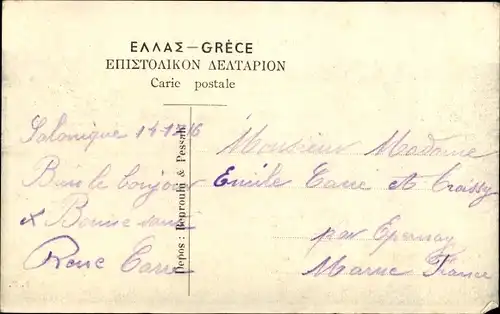 ΕΛΛΑΣ — GRÈCE
ΕΠΙΣΤΟΛΙΚΟΝ ΔΕΛΤΑΡΙΟΝ
Carie postale
Salonique 14-12-16
le bonjour
& Bonne santé
Rene Carré
Depos: Beprouhi & Pessah
Monsieur Madame
Emile Carré At Croissy
par Epernay
Marne France